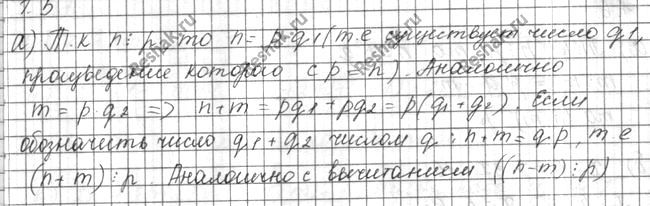 1.5
а) Т.к n⋮p, то n = p·q1 (т.е существует число q1,
произведение которого с p = n). Аналогично
m = p·q2 => n+m = pq1 + pq2 = p(q1 + q2). Если
обозначить число q1 + q2 числом q : n+m = q·p, т.е
(n+m)⋮p. Аналогично с вычитанием ((n-m)⋮p)
Reshak.ru